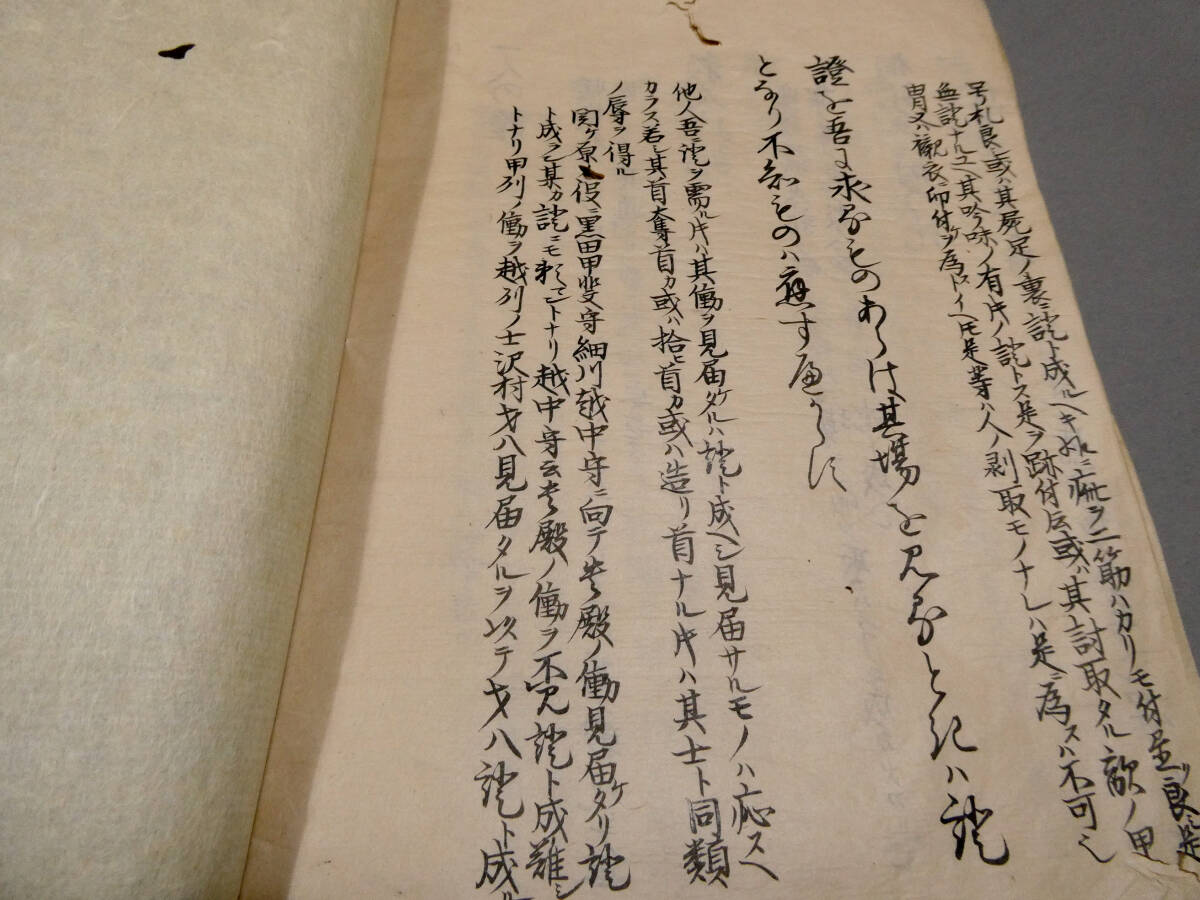 弓札良シ或ハ其屍足ノ裏ニ證ト成ルヘキ如ニ疵ヲ二筋ハカリモ付置ツ良シ是
血證ナルユヘ其吟味ノ有トキノ證トス是ヲ跡付ト云或ハ其討取タル敵ノ甲
冑又ハ襯衣ニ印付ケヲ為ストイヘトモ是等ハ人ノ剥取モノナレハ是ヲ為スハ不可也
證を吾に求るものあらは其場を見るときハ證
となり不知ものハ應すへからす
他人吾ニ證ヲ需ルトキハ其働ヲ見届ケタルハ證ト成ヘシ見届サルモノハ応スヘ
カラス若シ其首奪首カ或ハ拾ヒ首カ或ハ造リ首ナルトキハ其士ト同類
ノ辱ヲ得ル
関ケ原ノ役ニ黒田甲斐守細川越中守ニ向テ貴殿ノ働見届ケタリ證
ト成ラン某カ證ニモ頼ムトナリ越中守云貴殿ノ働ヲ不見證ト成難シ
トナリ甲列ノ働ヲ越列ノ士沢村才八見届タルヲ以テ才八證ト成ル